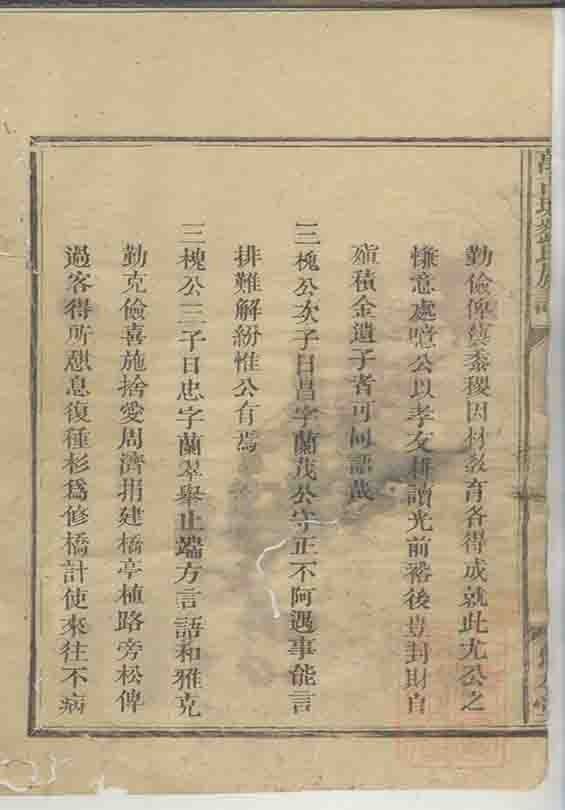 勤儉俾藝黍稷因材教育各得成就此尤公之
慊意處噫公以孝友耕讀光前裕後豈封財自
殖積金遺子者可同語哉
三槐公次子日昌字蘭茂公守正不阿遇事能言
排難解紛惟公有焉
三槐公三子日忠字蘭翠舉止端方言語和雅克
勤克儉喜施捨愛周濟捐建橋亭植路旁松俾
過客得所憩息復種杉爲修橋計使來往不病